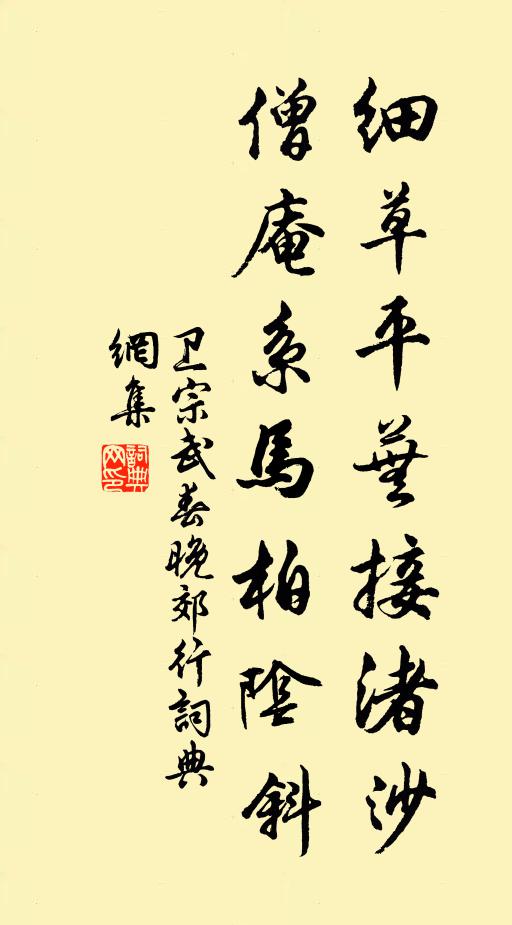 细草平蕪接渚沙
僧庵系馬柏陰斜
卫宗武春晚郊行詞典
網集
詞典网印